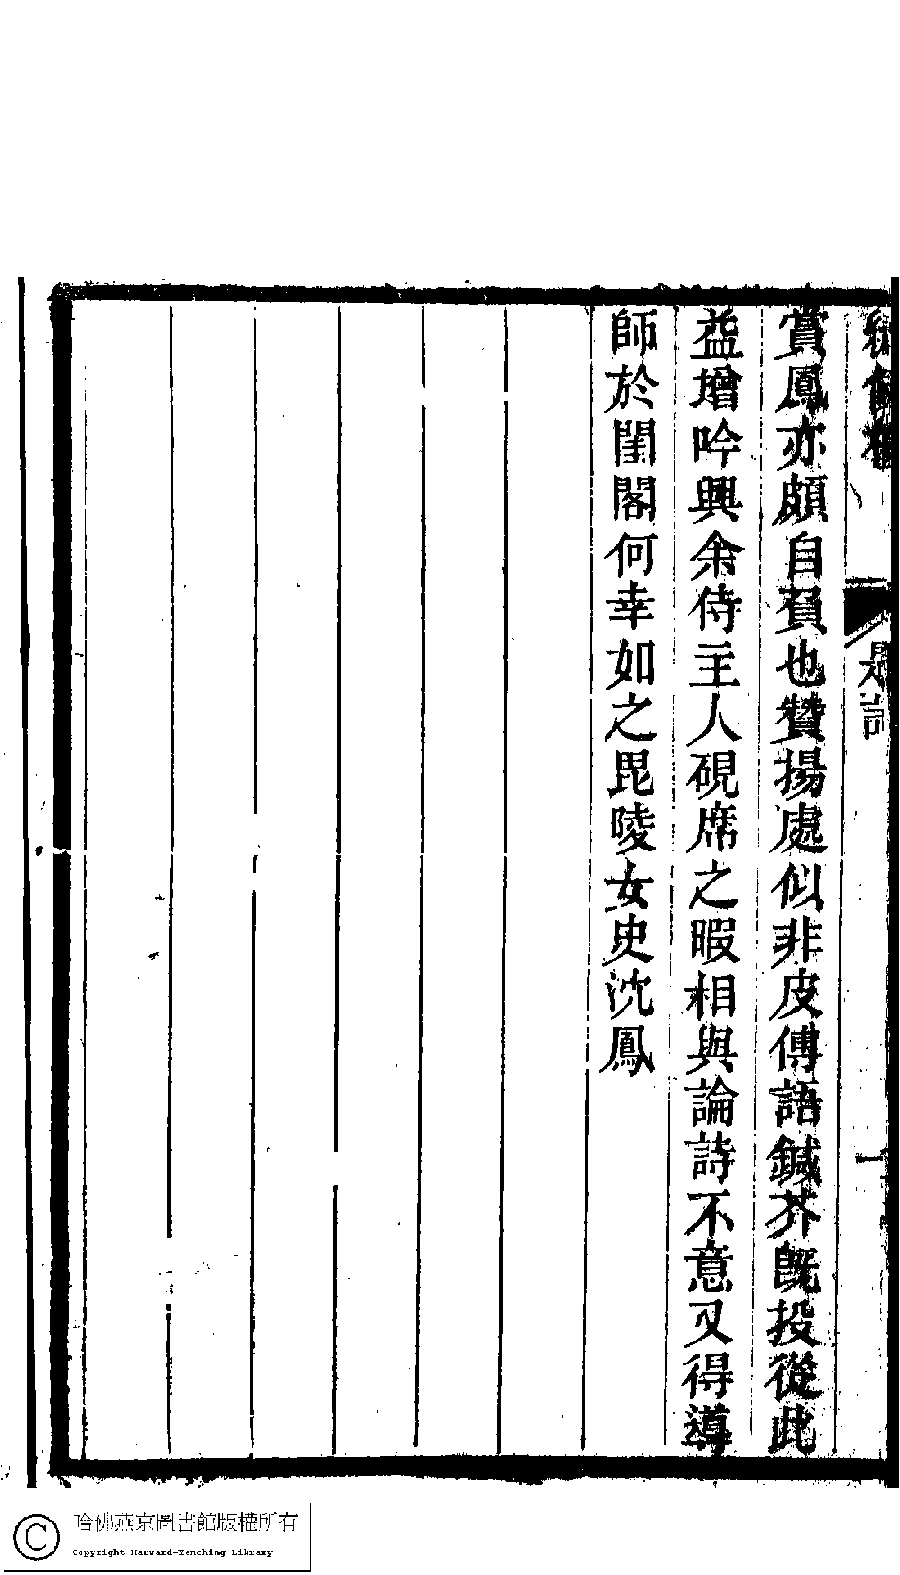 題詩
一
賞鳳亦頗自負也贊揚處似非皮傅語鍼芥旣投從此
益增吟興余侍主人硯席之暇相與論詩不意又得導
師於閨閣何幸如之毘陵女史沈鳳
哈佛燕京圖書館版權所有
Copyright Harvard-Yenching Library